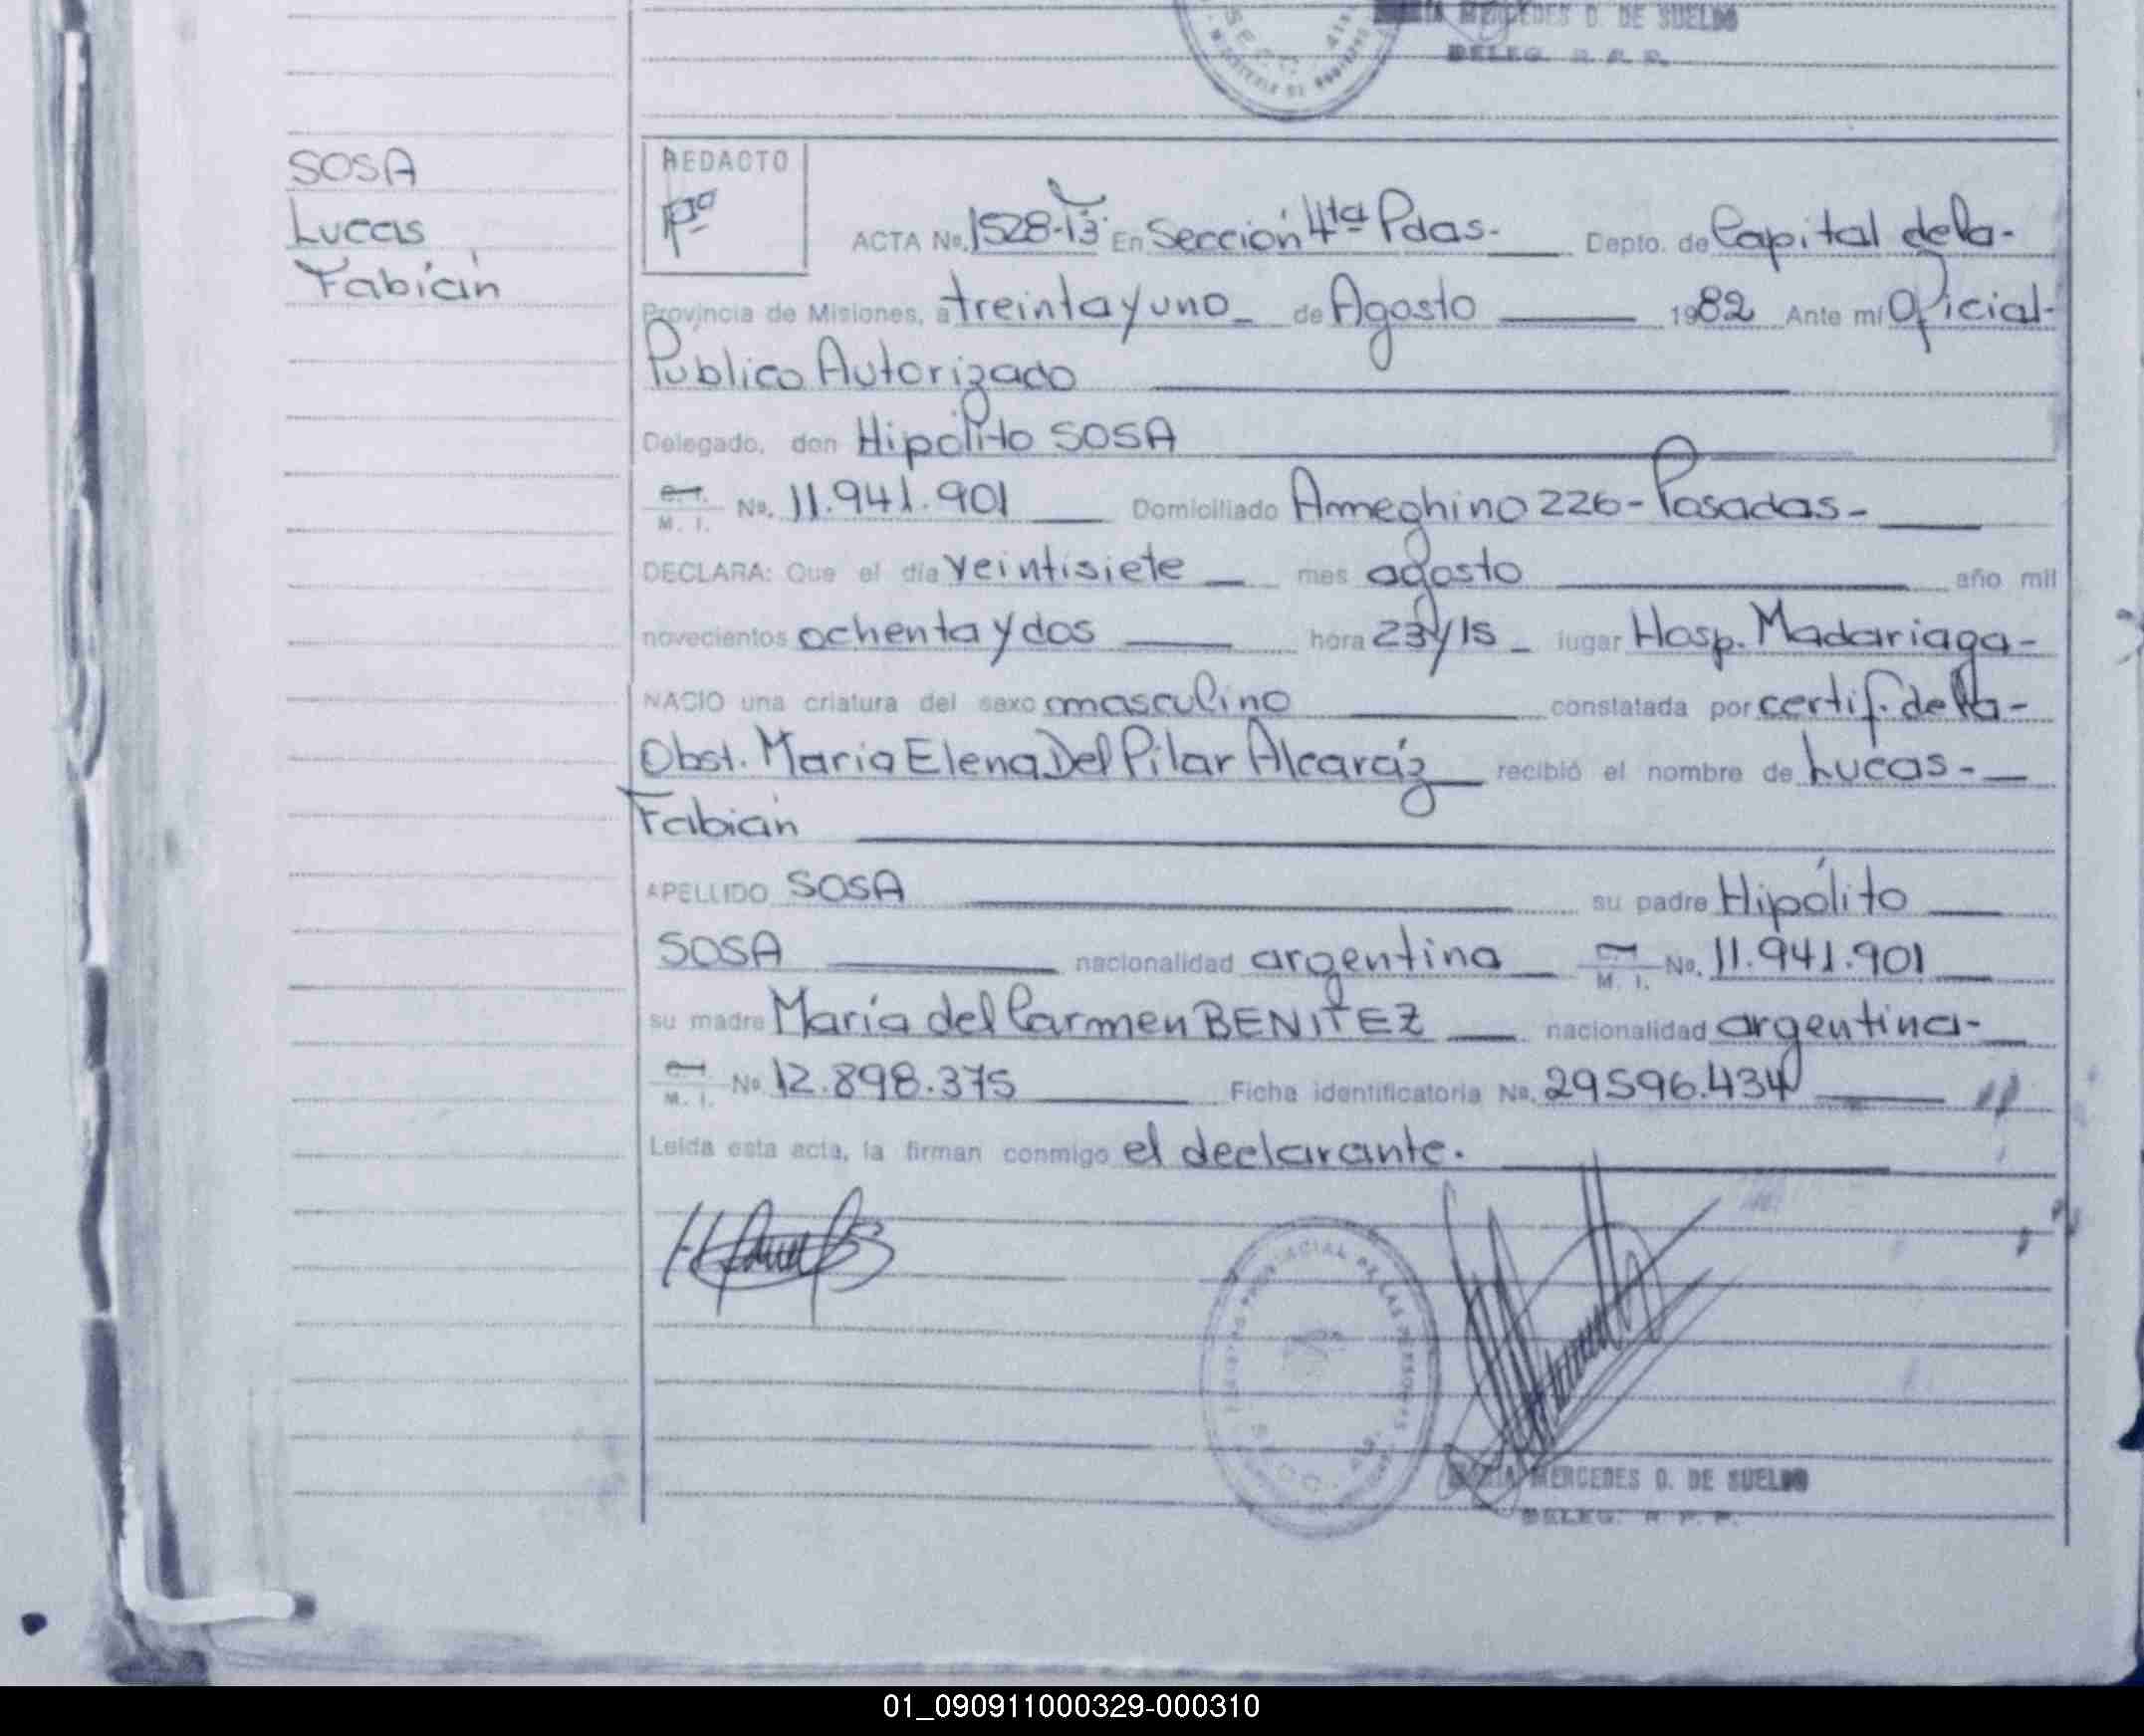 MERCEDES D. DE SUELDO
DELEG. R. P. P.
SOSA
Lucas
Fabián
REDACTO
ACTA No. 1528-T3 En Sección 4ta Pdas.- Depto. de Capital de la-
Provincia de Misiones, a treinta y uno de Agosto 1982 Ante mí Oficial-
Público Autorizado
Delegado, don Hipólito SOSA
M. I. No. 11.941.901 Domiciliado Ameghino 226- Posadas-
DECLARA: Que el día veintisiete mes agosto año mil
novecientos ochenta y dos hora 23 y 15 lugar Hosp. Madariaga-
NACIO una criatura del sexo masculino constatada por certif. de la-
Obst. María Elena Del Pilar Alcaráz recibió el nombre de Lucas-
Fabián
APELLIDO SOSA su padre Hipólito
SOSA nacionalidad argentina M. I. No. 11.941.901
su madre María del Carmen BENITEZ nacionalidad argentina-
M. I. No. 12.898.375 Ficha identificatoria No. 29596.434
Leída esta acta, la firman conmigo el declarante.
PROVINCIAL DE LAS PERSONAS
SECC. 4ta.
MERCEDES D. DE SUELDO
DELEG. R. P. P.
01_090911000329-000310